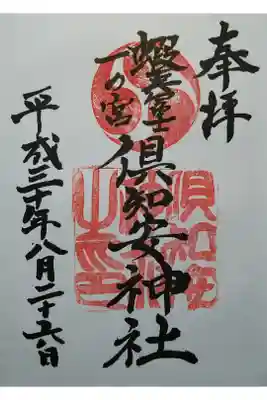 奉拝
蝦夷富士
一の宮
倶知安神社
平成三十年八月二十六日
倶知安
神社
之印